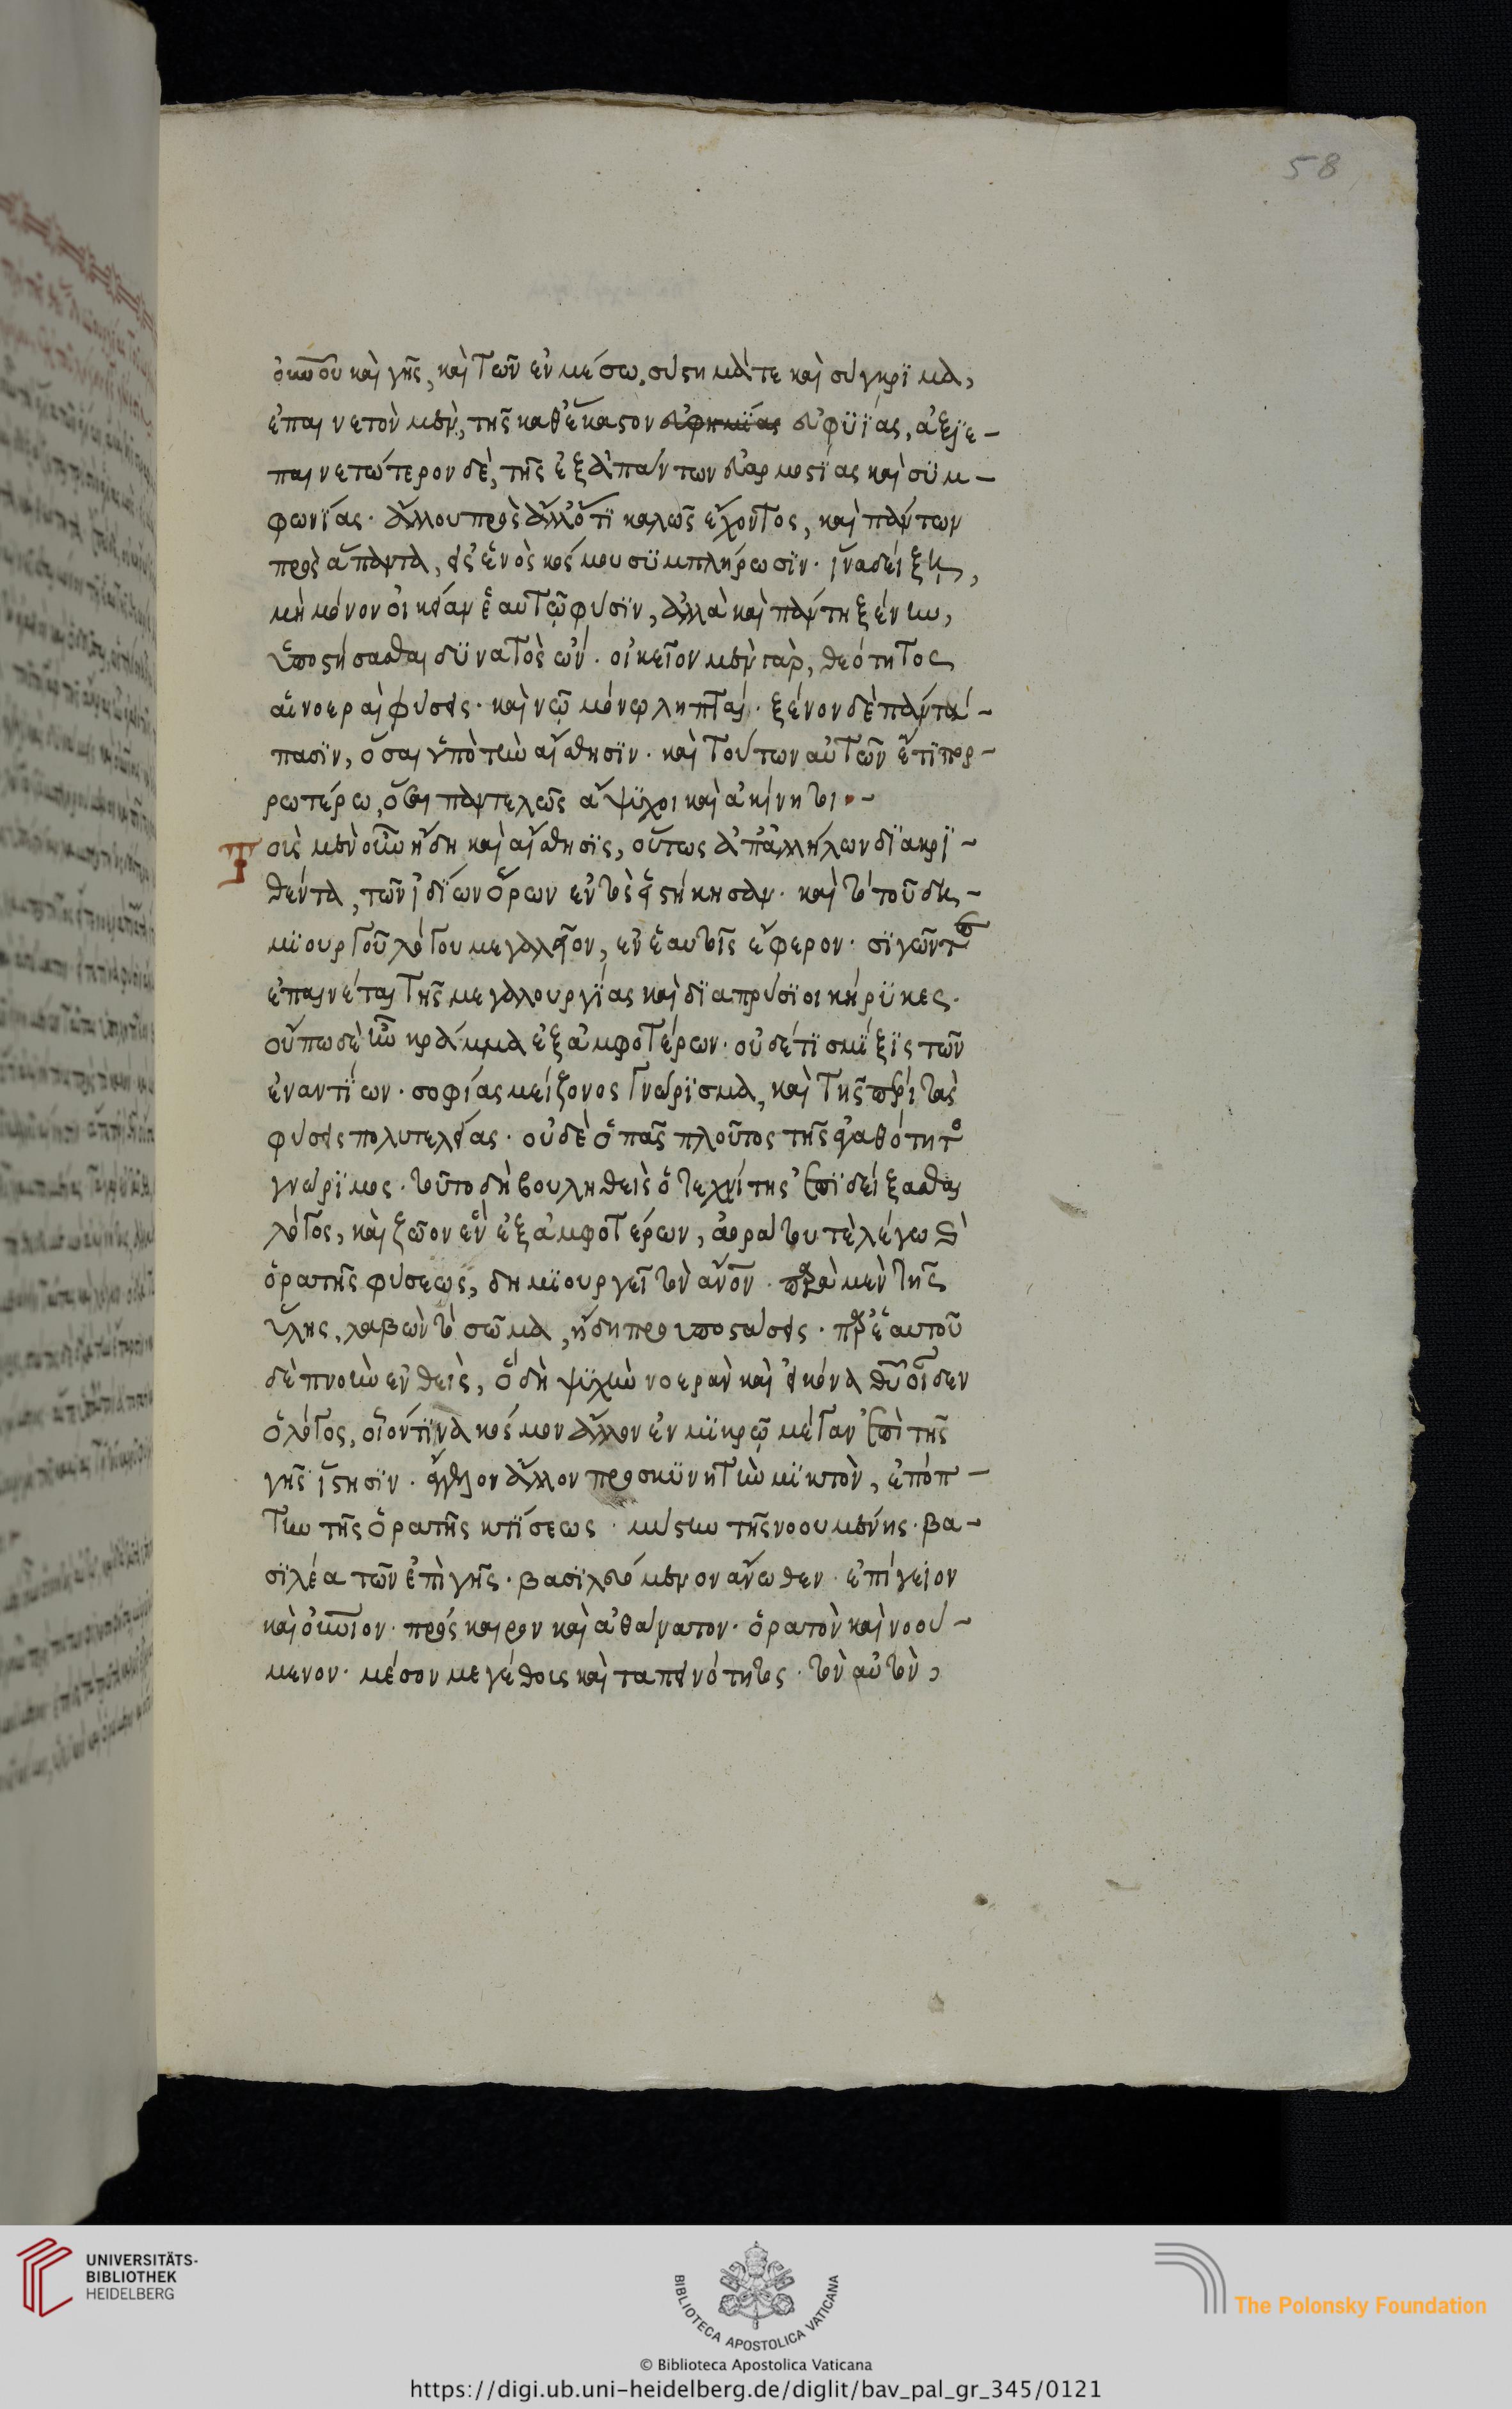 58
οὐνοῦ καὶ γῆς, καὶ τῶν ἐν μέσω, σύστημάτε καὶ σύγκρϊμα,
ἐπαινετὸν μὲν, τῆς καθ' ἕκαστον εὐφημΐας εὐφϋΐας, ἀξιε-
παινετώτερον δὲ, τῆς ἐξ ἁπάντων εὐαρμοστΐας καὶ σϋμ-
φωνΐας· ἄλλου πρὸς ἄλλ' ὅτϊ καλῶς ἔχοντος, καὶ πάντων
πρὸς ἅπαντα, εἰς ἑνὸς κόσμου σϋμπλήρωσϊν· ἵνα δείξη,
μὴ μόνον οἰκείαν ἑαυτῶ φύσϊν, ἀλλὰ καὶ πάντη ξένην,
ὑποστήσασθαι δϋνατὸς ὤν· οἰκεῖον μὲν γὰρ, θεότητος
αἱ νοεραὶ φύσεις· καὶ νῶ μόνω ληπταί· ξένον δὲ παντά-
πασϊν, ὅσαι ὑπὸ τὴν αἴσθησϊν· καὶ τούτων αὐτῶν ἔτϊ πορ-
ρωτέρω, ὅσαι παντελῶς ἄψϋχοι καὶ ἀκίνητοι·-
Τοὺς μὲν οὖν ἤδη καὶ αἴσθησϊς, οὕτως ἀπ' ἀλλήλων δϊακρϊ-
θέντα, τῶν ἰδΐων ὅρων ἐντὸς εἱστήκησαν· καὶ τὸ τοῦ δη-
μϊουργοῦ λόγου μεγαλεῖον, ἐν ἑαυτοῖς ἔφερον· σϊγῶντες
ἐπαινέται τῆς μεγαλουργΐας καὶ δϊαπρύσϊοι κήρϋκες·
οὔπω δὲ ἦν κράμμα ἐξ ἀμφοτέρων· οὐδέ τϊς μΐξϊς τῶν
ἐναντΐων· σοφΐας μείζονος γνώρϊσμα, καὶ τῆς περὶ τὰς
φύσεις πολυτελείας· οὐδὲ ὁ πᾶς πλοῦτος τῆς ἀγαθότητος
γνώρϊμος· τοῦτο δὴ βουληθεὶς ὁ τεχνίτης ἐπϊδείξασθαι
λόγος, καὶ ζῶον ἓν ἐξ ἀμφοτέρων, ἀοράτου τὲ λέγω καὶ
ὁρατῆς φύσεως, δημϊουργεῖ τὸν ἄνον· παρὰ μὲν τῆς
ὕλης, λαβὼν τὸ σῶμα, ἤδη προυποστάσης· παρ' ἑαυτοῦ
δὲ πνοὴν ἐνθεὶς, ὃ δὴ ψϋχὴν νοερὰν καὶ εἰκόνα θῦ οἶδεν
ὁ λόγος, οἷόν τϊνα κόσμον ἄλλον ἐν μϊκρῶ μέγαν ἐπὶ τῆς
γῆς ἵστησϊν· ἄγγελον ἄλλον προσκϋνητὴν μϊκτὸν, ἐπόπ-
την τῆς ὁρατῆς κτΐσεως· μύστην τῆς νοουμένης· βα-
σϊλέα τῶν ἐπὶ γῆς· βασϊλευόμενον ἄνωθεν· ἐπίγειον
καὶ οὐνιον· πρόσκαιρον καὶ ἀθάνατον· ὁρατὸν καὶ νοού-
μενον· μέσον μεγέθους καὶ ταπεινότητος· τὸν αὐτὸν,
UNIVERSITÄTS-
BIBLIOTHEK
HEIDELBERG
BIBLIOTECA APOSTOLICA VATICANA
© Biblioteca Apostolica Vaticana
The Polonsky Foundation
https://digi.ub.uni-heidelberg.de/diglit/bav_pal_gr_345/0121